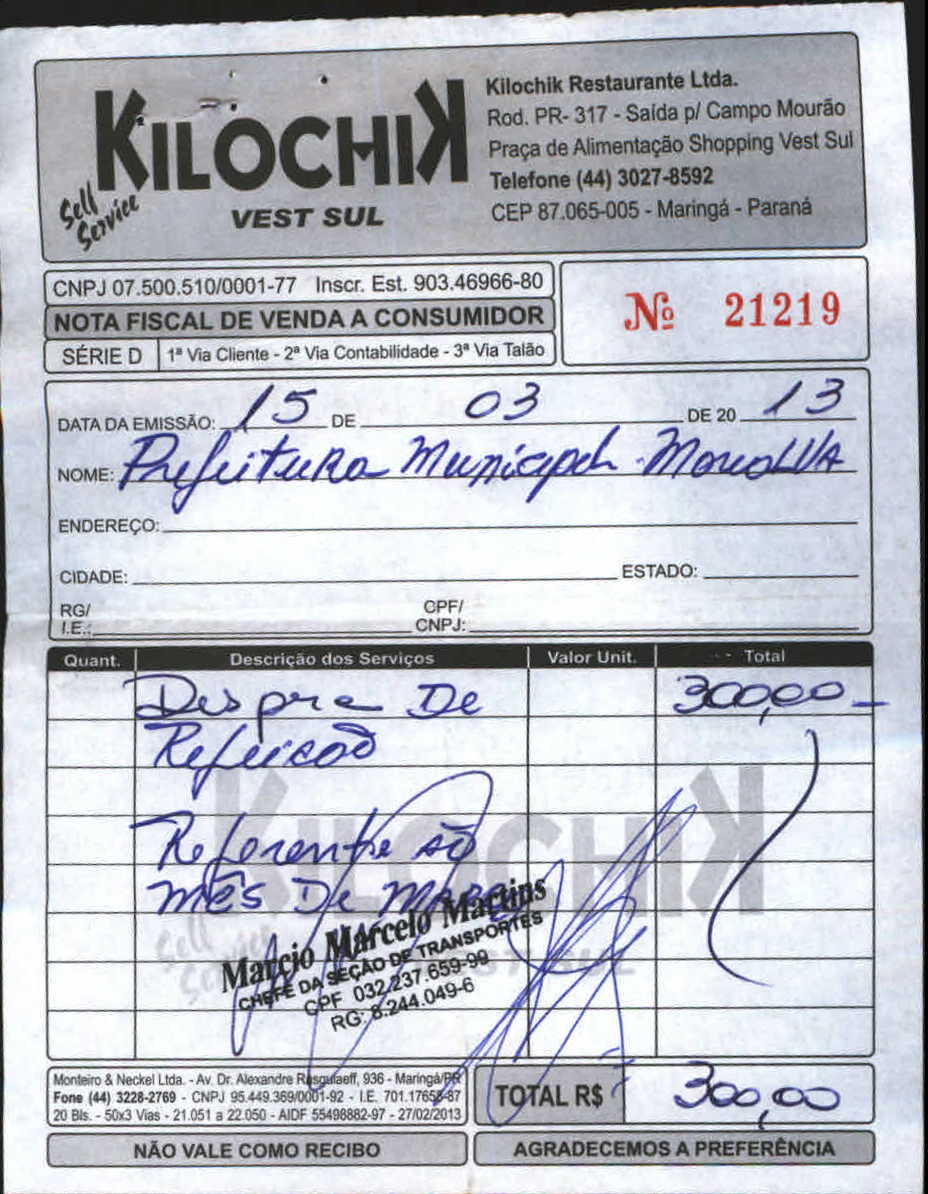 KILOCHIK
Self Service
VEST SUL
Kilochik Restaurante Ltda.
Rod. PR- 317 - Saída p/ Campo Mourão
Praça de Alimentação Shopping Vest Sul
Telefone (44) 3027-8592
CEP 87.065-005 - Maringá - Paraná
CNPJ 07.500.510/0001-77 Inscr. Est. 903.46966-80
NOTA FISCAL DE VENDA A CONSUMIDOR
SÉRIE D 1ª Via Cliente - 2ª Via Contabilidade - 3ª Via Talão
Nº 21219
DATA DA EMISSÃO: 15 DE 03 DE 20 13
NOME: Prefeitura Municipal
ENDEREÇO:
CIDADE: ESTADO:
RG/ I.E.: CPF/ CNPJ:
Quant. Descrição dos Serviços Valor Unit. Total
De 300,00
Refeicão
Referente ao
mês De
KILOCHIK
Self Service
VEST SUL
Marcio Marcelo Martins
CHEFE DA SEÇÃO DE TRANSPORTES
CPF 032.237.659-99
RG: 8.244.049-6
Monteiro & Neckel Ltda. - Av. Dr. Alexandre Rasgulaeff, 936 - Maringá/PR
Fone (44) 3228-2769 - CNPJ 95.449.369/0001-92 - I.E. 701.17658-87
20 Bls. - 50x3 Vias - 21.051 a 22.050 - AIDF 55498882-97 - 27/02/2013
TOTAL R$ 300,00
NÃO VALE COMO RECIBO
AGRADECEMOS A PREFERÊNCIA